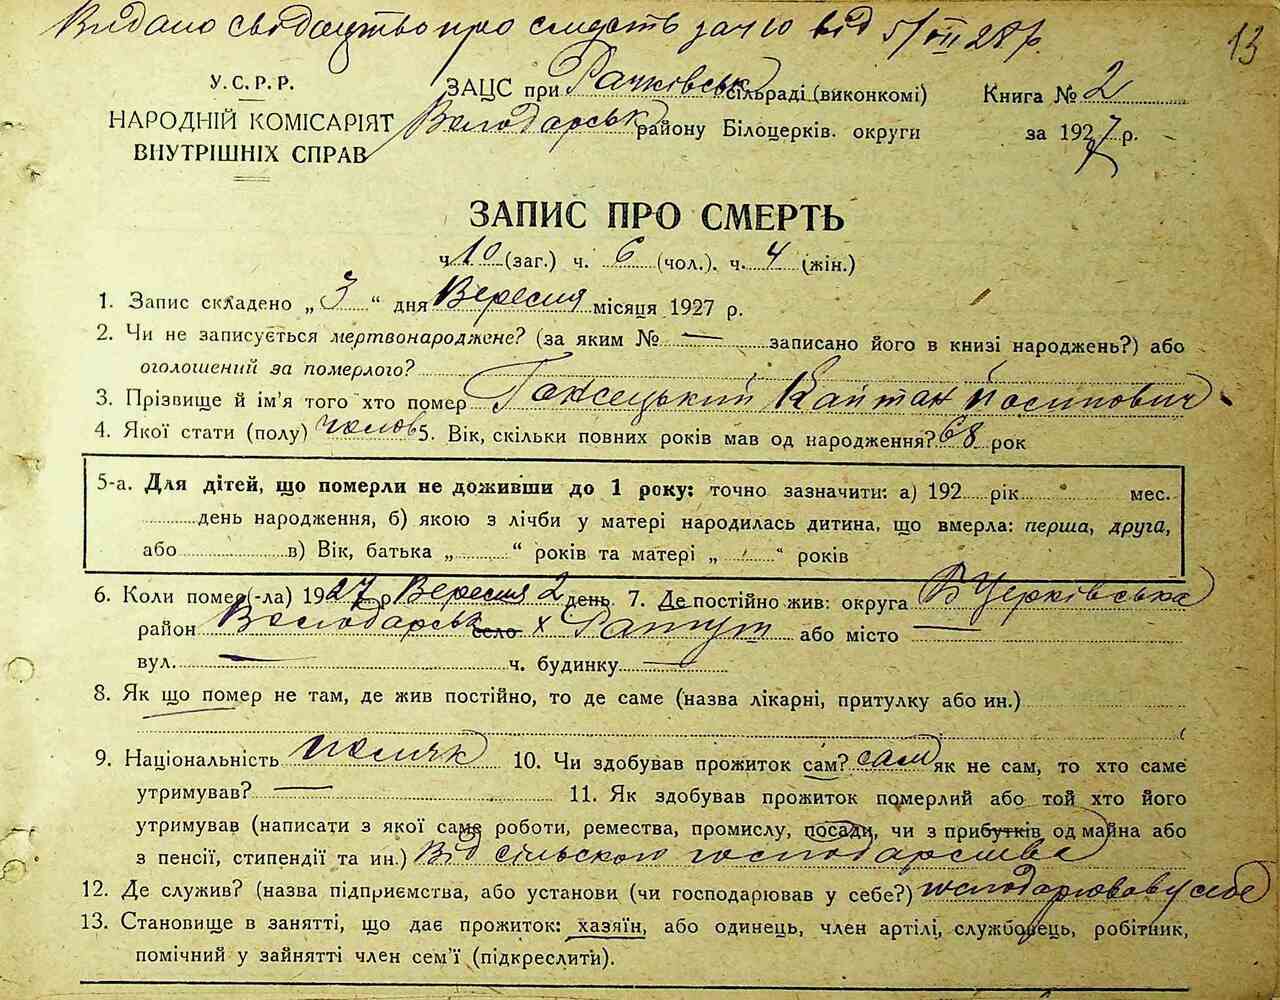 Видано свідоцтво про смерть за ч 10 від 5/VII 28 р.
13
У.С.Р.Р.
НАРОДНІЙ КОМІСАРІЯТ
ВНУТРІШНІХ СПРАВ
ЗАЦС при Рачківськ сільраді (виконкомі)
Володарськ району Білоцерків. округи
Книга № 2
за 1927 р.
ЗАПИС ПРО СМЕРТЬ
ч 10 (заг.) ч. 6 (чол.). ч. 4 (жін.)
1. Запис складено „ 3 “ дня Вересня місяця 1927 р.
2. Чи не записується мертвонароджене? (за яким № — записано його в книзі народжень?) або
оголошений за померлого?
3. Прізвище й ім'я того хто помер Гажецький Кайтан Йосипович
4. Якої стати (полу) чолов 5. Вік, скільки повних років мав од народження? 68 рок
5-а. Для дітей, що померли не доживши до 1 року: точно зазначити: а) 192 рік мес.
день народження, б) якою з лічби у матері народилась дитина, що вмерла: перша, друга,
або в) Вік, батька „ “ років та матері „ “ років
6. Коли помер(-ла) 1927 р Вересня 2 день 7. Де постійно жив: округа Б Церківська
район Володарськ село х Ратуш або місто —
вул. — ч. будинку —
8. Як що помер не там, де жив постійно, то де саме (назва лікарні, притулку або ин.)
9. Національність поляк 10. Чи здобував прожиток сам? сам як не сам, то хто саме
утримував? — 11. Як здобував прожиток померлий або той хто його
утримував (написати з якої саме роботи, ремества, промислу, посади, чи з прибутків од майна або
з пенсії, стипендії та ин.) Від сільского господарства
12. Де служив? (назва підприємства, або установи (чи господарював у себе?) господарював у себе
13. Становище в занятті, що дає прожиток: хазяїн, або одинець, член артілі, службовець, робітник,
помічний у зайнятті член сем'ї (підкреслити).